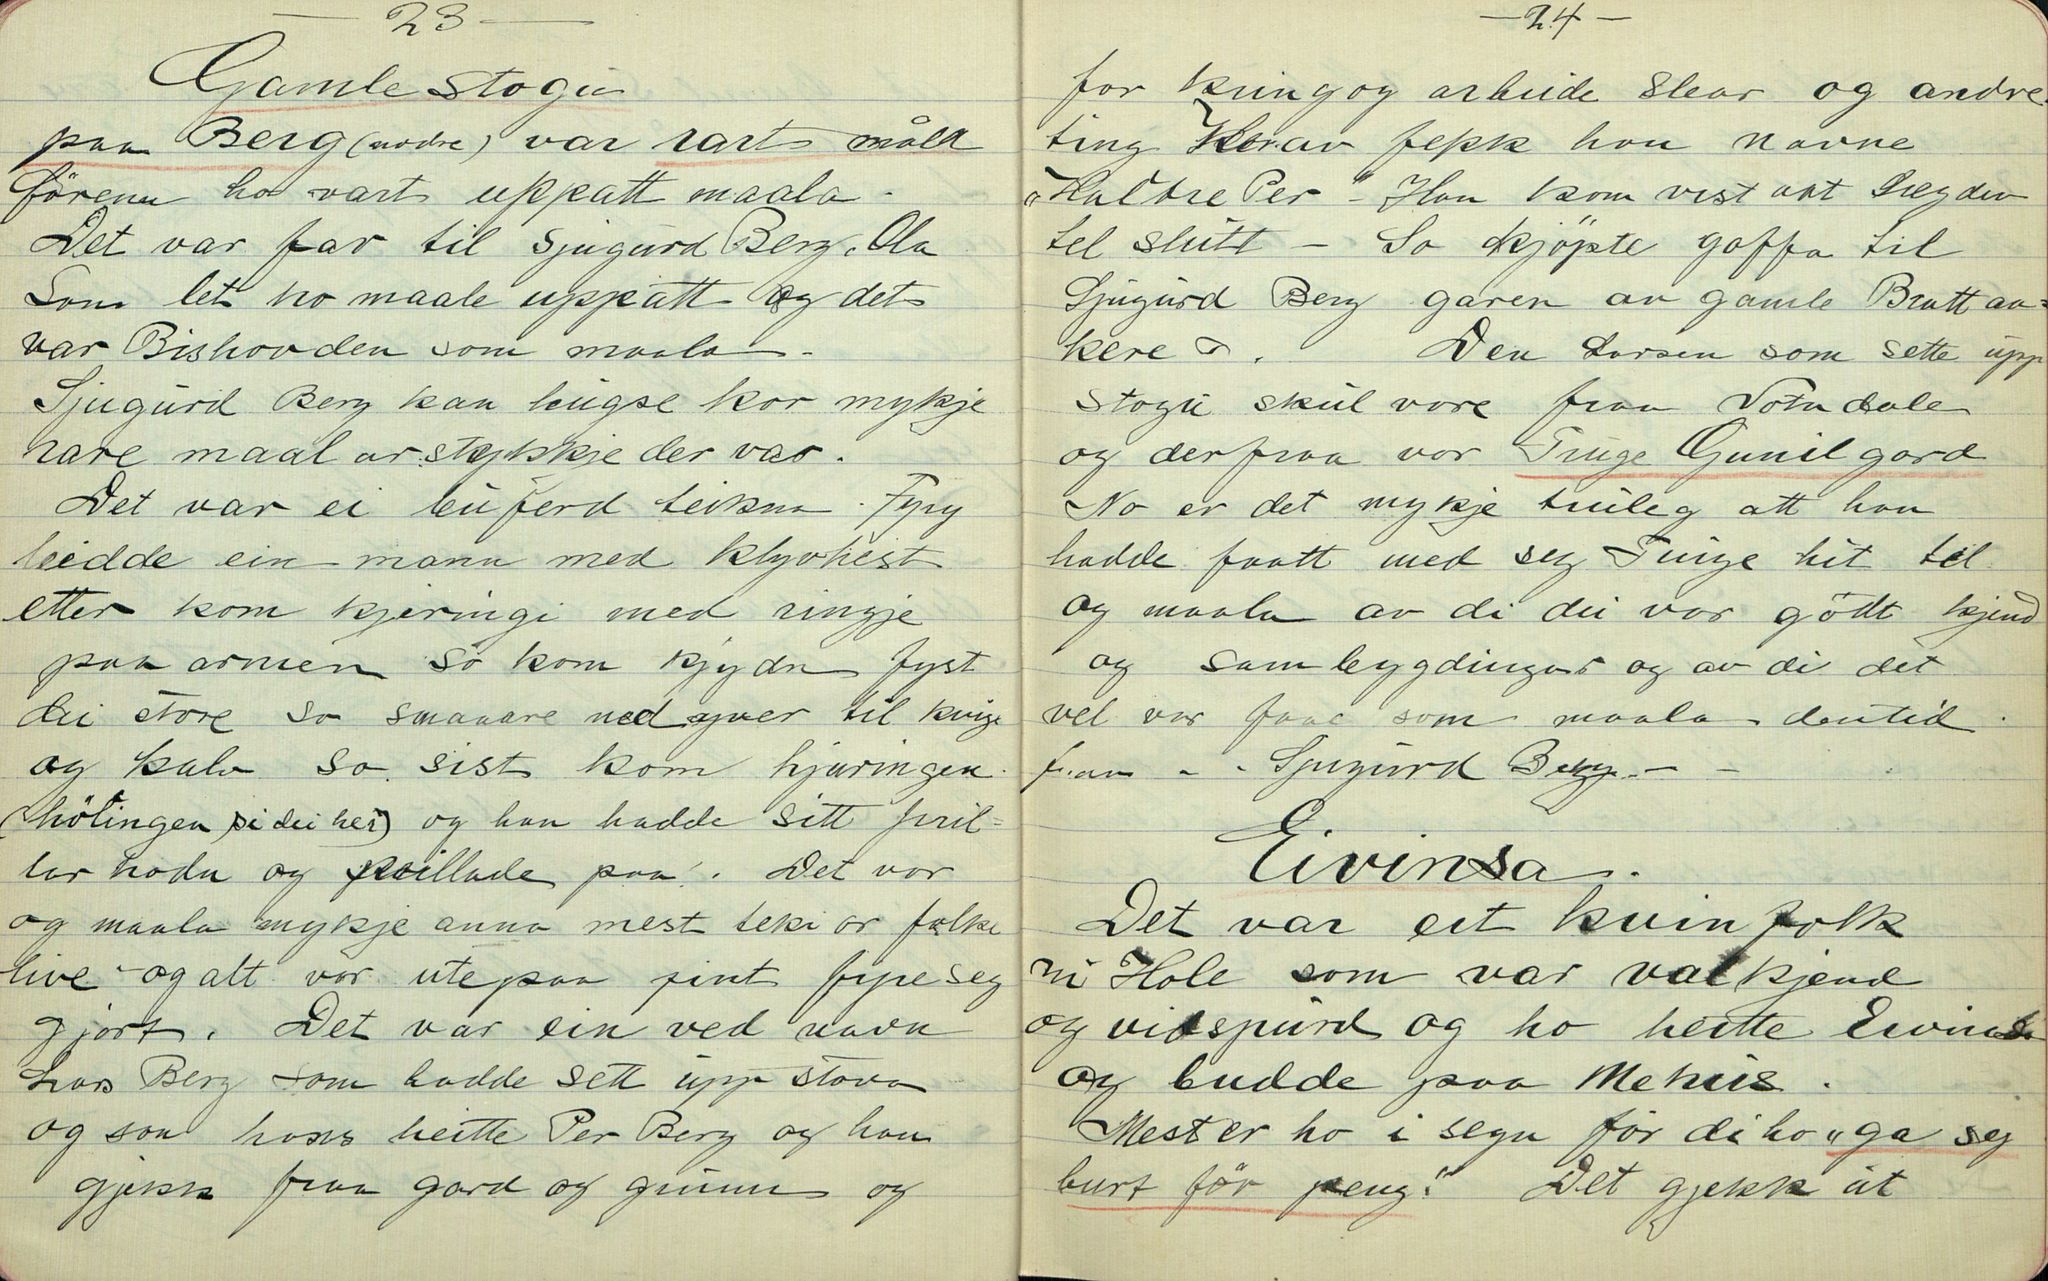 - 23 -
Gamle stogu
paa Berg (nodre) var rart målá
förenn ho vart uppatt maala.
Det var far til Sjugurd Berg, Ola
Som let ho maale uppatt og det
var Bishovden som maala.
Sjugurd Berg kan hugse kor mykje
rare maalarstykkje der var.
Det var ei buferd teikna. Fyry
leidde ein mann med klyvhest
etter kom kjeringi med ringje
paa armen so kom kjydn fyst
dei store so smaaare nedyver til kvige
og kalv so sist kom hjuringen
(hötingen, si dei her) og han hadde sitt pril=
lar hodn og prillade paa. Det var
og maala mykje anna mest teki or folke
live - og alt var utepaa fint fyre seg
gjort. Det var ein ved navn
Lars Berg som hadde sett upp stova
og son hans heitte Per Berg og han
gjekk fraa gard og grunn og
- 24 -
for kring og arbeide slear og andre
ting Herav fekk han navne
"Per" - Han kom vist att bygden
tel slutt - So kjöpte goffa til
Sjugurd Berg garen av gamle Brattaa=
kere. Den Larsen som sette upp
stogu skul vore fraa Votndale
og derfraa var Truge Gunilgard
No er det mykje truleg att han
hadde faatt med seg Truge hit tel
og maala av di dei var gödt kjend
og sambygdingar og av di det
vel var faae som maala dentid.
fraa - - Sjugurd Berg - -
Eivinsa.
Det var eit kvinfolk
ni Hole som var valkjend
og vidspurd og ho heitte Eivinsa
og budde paa Mehus.
Mest er ho i segn för di ho "ga seg
burt för peng". Det gjekk åt